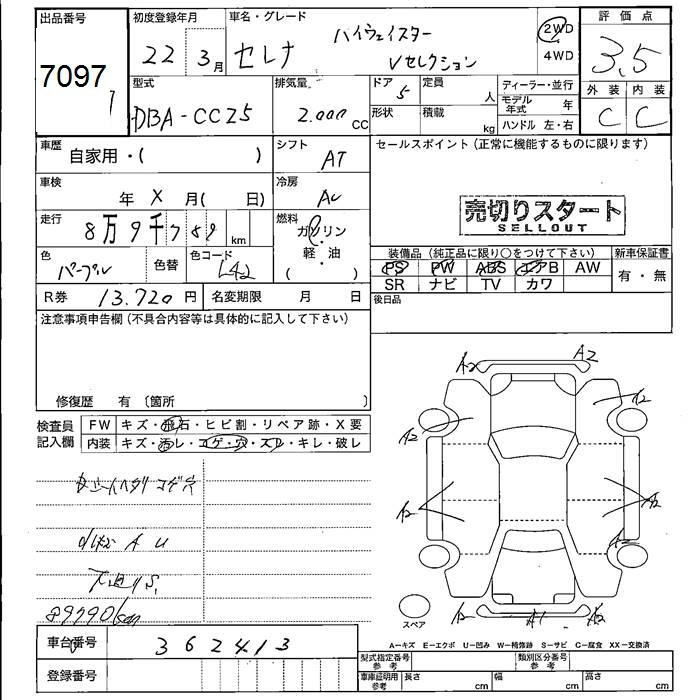 出品番号 7097 1
初度登録年月 22 3月
車名・グレード セレナ ハイウェイスター Vセレクション
2WD 4WD
評価点 3.5
外装 C 内装 C
型式 DBA-CC25
排気量 2.000 CC
ドア 5 形状
定員 人 積載 kg
ディーラー・並行
モデル年式 年
ハンドル 左・右
車歴 自家用・( )
シフト AT
セールスポイント(正常に機能するものに限ります)
売切りスタート
SELLOUT
車検 年 X 月( 日)
冷房 AC
走行 8万9千789 km
燃料 ガソリン・軽・油 ( )
色 パープル 色替 色コード L42
装備品(純正品に限り○をつけて下さい) 新車保証書
PS PW ABS エアB AW 有・無
SR ナビ TV カワ
後日品
R券 13.720円 名変期限 月 日
注意事項申告欄(不具合内容等は具体的に記入して下さい)
修復歴 有 〔箇所 〕
検査員記入欄
FW キズ・飛石・ヒビ割・リペア跡・X要
内装 キズ・汚レ・コゲ・穴・スレ・キレ・破レ
コゲ穴
A U
89790km
A2 A2
A2 A2
A2 A2
A2 A1 A2
スペア
車台番号 362413
登録番号
A-キズ E-エクボ U-凹み W-補修跡 S-サビ C-腐食 XX-交換済
型式指定番号 参考 類別区分番号 参考
車庫証明用 参考 長さ cm 幅 cm 高さ cm